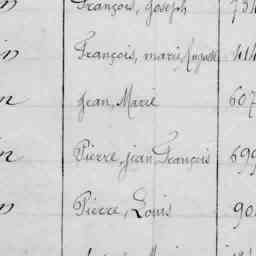 François, Joseph
François, marie, Auguste
Jean, Marie 607
Pierre, jean, François 699
Pierre, Louis